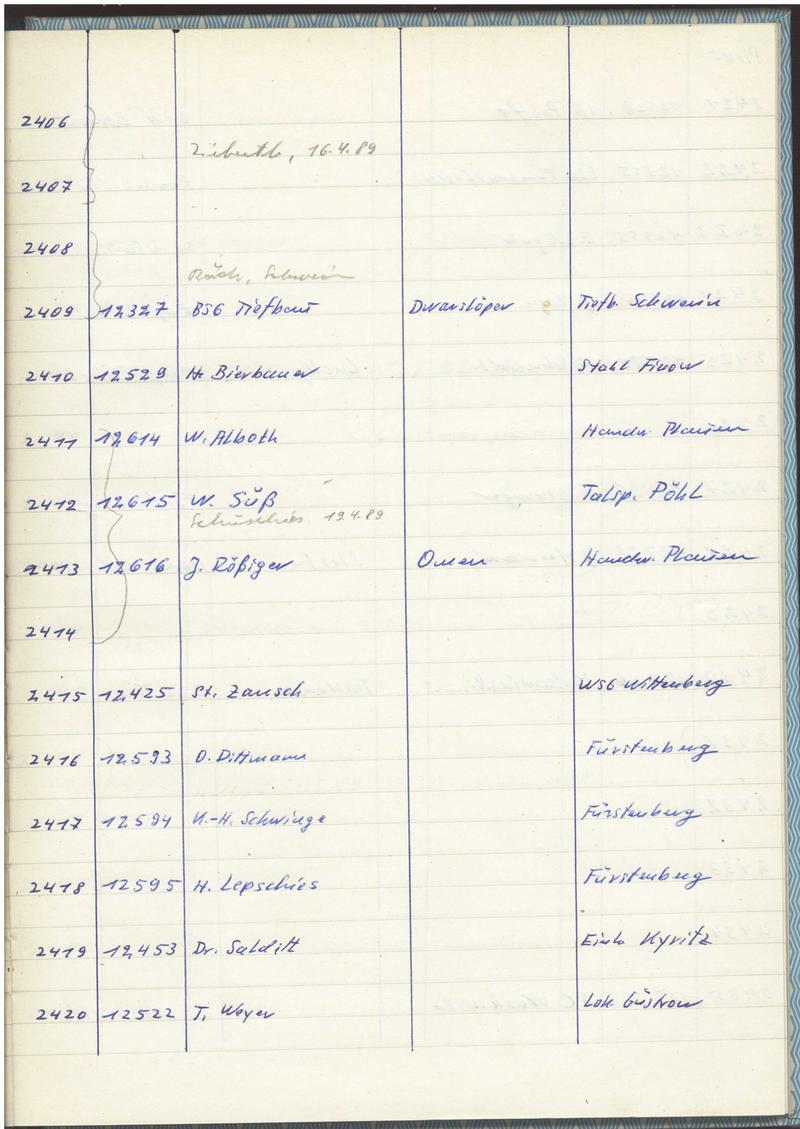 2406
Ziebuth, 16.4.89
2407
2408
Räch, Schwerin
2409 12327 BSG Tiefbau Dwarslöper Tiefb. Schwerin
2410 12529 H. Bierbauer Stahl Finow
2411 12614 W. Alboth Handw. Plauen
2412 12615 W. Süß Talsp. Pöhl
19.4.89
2413 12616 J. Rößiger Omen Handw. Plauen
2414
2415 12425 St. Zausch WSG Wittenberg
2416 12593 O. Dittmann Fürstenberg
2417 12594 K.-H. Schwinge Fürstenberg
2418 12595 H. Lepschies Fürstenberg
2419 12453 Dr. Salditt Einh. Kyritz
2420 12522 T. Weyer Lok. Güstrow